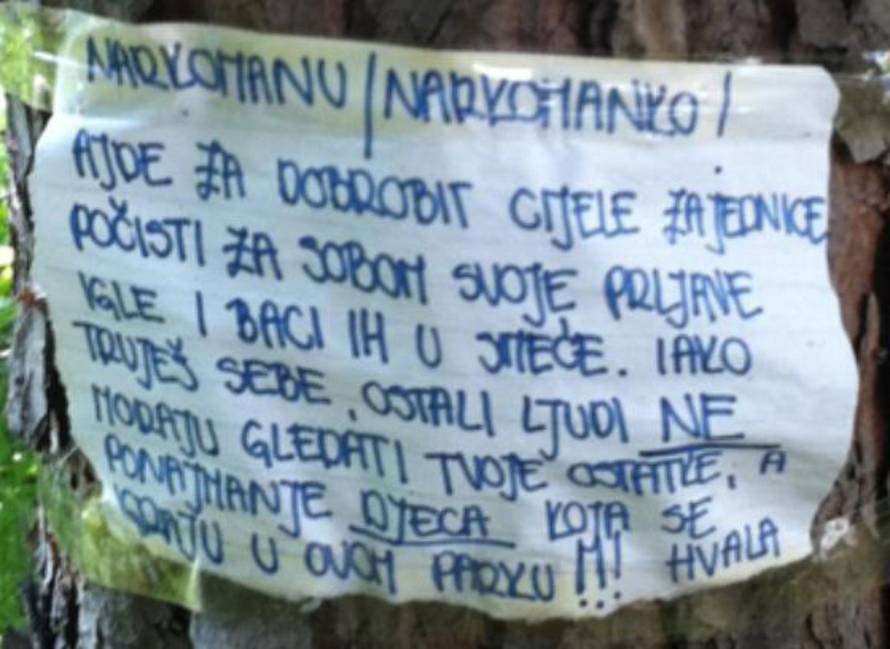 NARKOMANU / NARKOMANKO /
AJDE ZA DOBROBIT CIJELE ZAJEDNICE
POČISTI ZA SOBOM SVOJE PRLJAVE
IGLE I BACI IH U SMEĆE. IAKO
TRUJEŠ SEBE, OSTALI LJUDI NE
MORAJU GLEDATI TVOJE OSTATKE, A
PONAJMANJE DJECA KOJA SE
IGRAJU U OVOM PARKU !!! HVALA